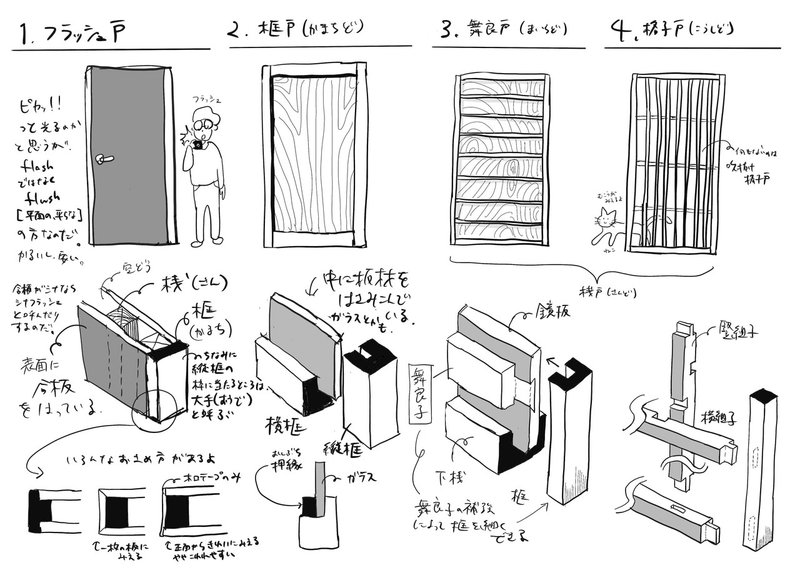 1. フラッシュ戸
ピカっ!!
っと光るのか
と思うが、
flash
ではなく
flush
[平面の、平らな]
の方なのだ。
かるいし、安い。
フラッシュ
合板がシナなら
シナフラッシュ
と呼んだり
するのだ。
空どう
桟(さん)
框
(かまち)
ちなみに
縦框の
枠に当たるところは、
大手(おおで)
と呼ぶぞ
表面に
合板
をはっている。
いろんなおさめ方があるよ
木口テープのみ
↑一枚の板に
みえる
↑正面からきれいにみえる
ややこわれやすい
2. 框戸(かまちど)
中に板材を
はさみこんで
いる。
ガラスとかも。
横框
縦框
おしぶち
押縁
ガラス
3. 舞良戸(まいらど)
桟戸(さんど)
鏡板
舞良子
下桟
框
舞良子の補強
によって框を細く
できる
4. 格子戸(こうしど)
何もないのは
吹抜け
格子戸
むこうが
みえるよ
竪組子
横組子